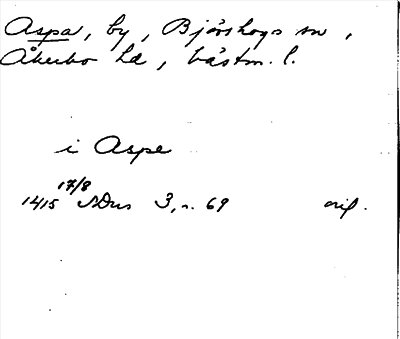 Aspa, by, Björskogs sn,
Åkerbo hd, Västm. l.
i Aspe
17/8
1415 SDns 3, n. 69 orig.